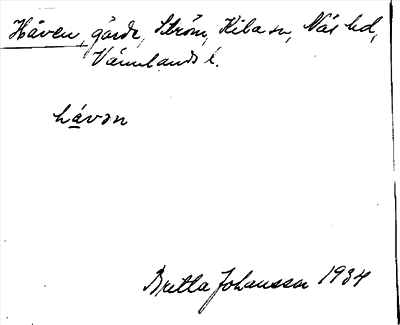 Håven, gärde, Ström, Kila sn, Näs hd,
Värmlands l.
hå̱vən
Britta Johansson 1934